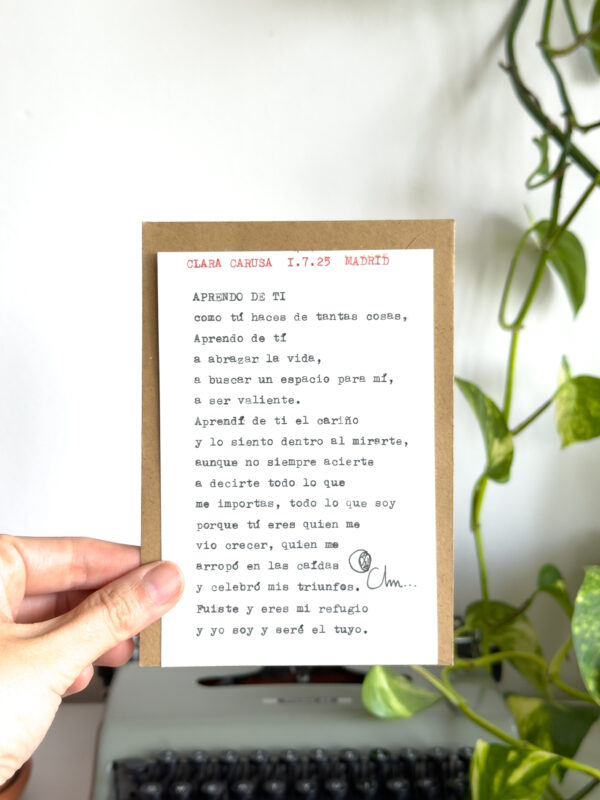 CLARA CARUSA I.7.25 MADRID
APRENDO DE TI
como tú haces de tantas cosas,
Aprendo de tí
a abrazar la vida,
a buscar un espacio para mí,
a ser valiente.
Aprendí de ti el cariño
y lo siento dentro al mirarte,
aunque no siempre acierte
a decirte todo lo que
me importas, todo lo que soy
porque tú eres quien me
vio crecer, quien me
arropó en las caídas
y celebró mis triunfos.
Fuiste y eres mi refugio
y yo soy y seré el tuyo.